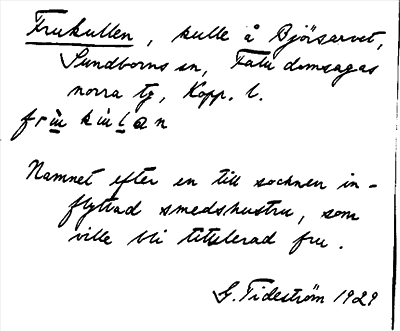 Frukullen, kulle å Bjösarvet,
Sundborns sn, Falu domsagas
norra tg, Kopp. l.
Namnet efter en till socknen in-
flyttad smedshustru, som
ville bli titulerad fru.
G. Tideström 1929